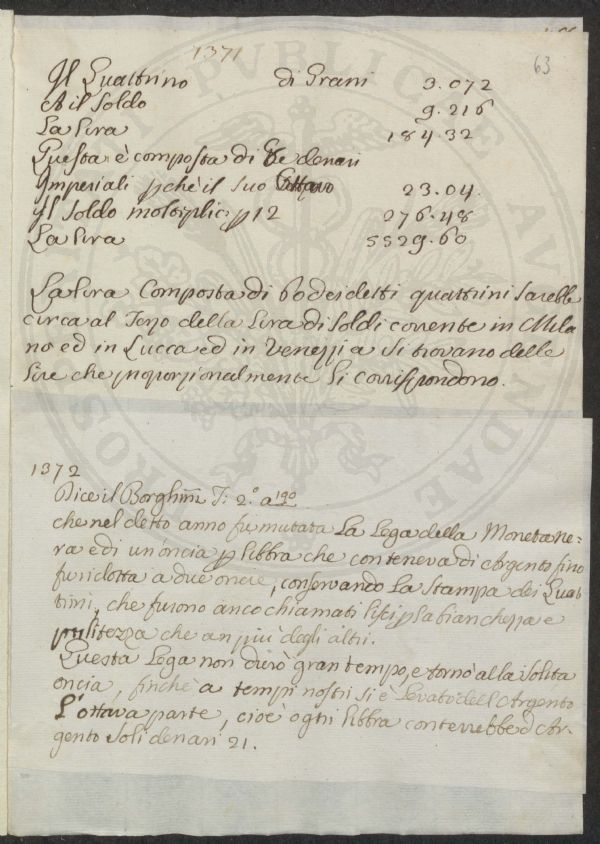 1371
63
Il Quattrino di Grani 3.072
e il Soldo 9.216
La Lira 184.32
Questa è composta di denari
Imperiali pchè il suo Ottavo 23.04.
Il Soldo moltiplic. p 12 276.48
La Lira 5529.60
La Lira Composta di 60 dei detti quattrini sarebbe
circa al Terzo della Lira di Soldi corrente in Mila
no ed in Lucca ed in Venezzia si trovano delle
lire che proporzionalmente li corrispondono.
1372
Dice il Borghini T: 2.º a 190
che nel detto anno fu mutata La Lega della Moneta ne-
ra e di un'oncia p libbra che conteneva di Argento fino
fu ridotta a due oncie, conservando La Stampa dei Quat
trini, che furono anco chiamati lisci p la bianchezza e
pulitezza che an più degli altri.
Questa Lega non durò gran tempo, e tornò alla solita
oncia, finchè a tempi nostri si è levato dell'Argento
L'ottava parte, cioè ogni libbra conterrebbe d'Ar-
gento soli denari 21.